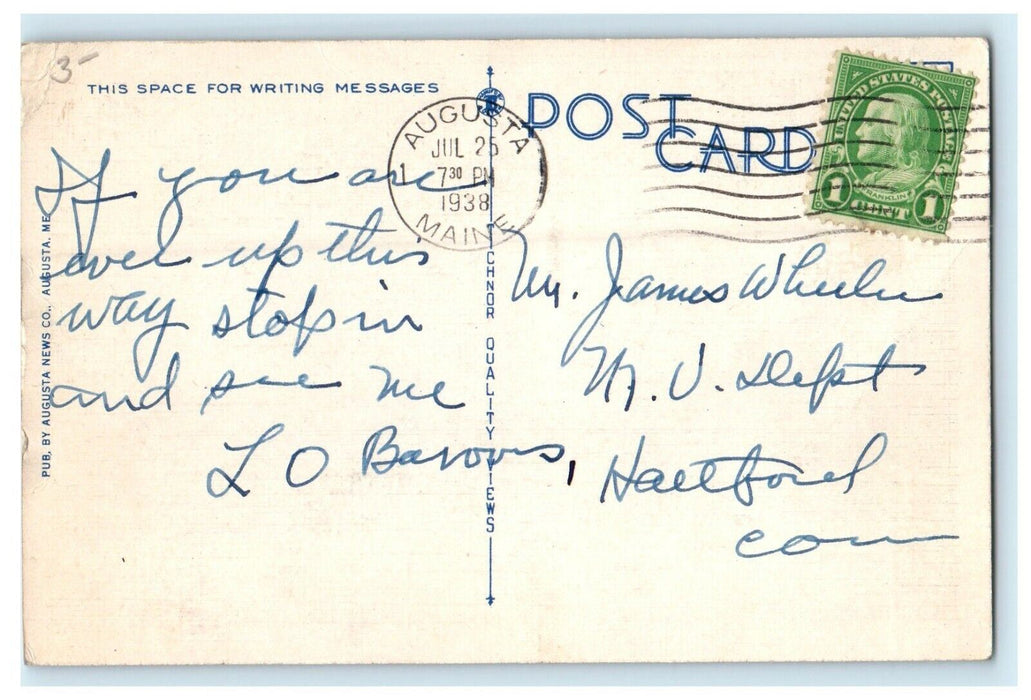 3-
THIS SPACE FOR WRITING MESSAGES
POST
CARD
AUGUSTA
JUL 25
7 30 PM
1938
MAINE
1
UNITED STATES POSTAGE
FRANKLIN
1 CENT 1
If you are
over up this
way stop in
and see me
L O Barrows,
Mr. James Wheeler
M. V. Dept
Hartford
Conn
PUB. BY AUGUSTA NEWS CO., AUGUSTA, ME.
QUALITY VIEWS